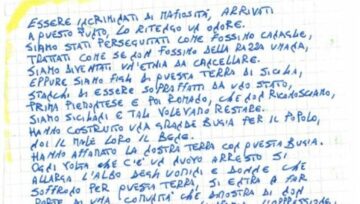 ESSERE INCRIMINATI DI MAFIOSITÀ, ARRIVATI
A QUESTO PUNTO, LO RITENGO UN ONORE.
SIAMO STATI PERSEGUITATI COME FOSSIMO CANAGLIE,
TRATTATI COME SE NON FOSSIMO DELLA RAZZA UMANA,
SIAMO DIVENTATI UN'ETNIA DA CANCELLARE.
EPPURE SIAMO FIGLI DI QUESTA TERRA DI SICILIA,
STANCHI DI ESSERE SOPRAFFATTI DA UNO STATO,
PRIMA PIEMONTESE E POI ROMANO, CHE NON RICONOSCIAMO,
SIAMO SICILIANI E TALI VOLEVAMO RESTARE.
HANNO COSTRUITO UNA GRANDE BUGIA PER IL POPOLO,
NOI IL MALE LORO IL BENE.
HANNO AFFAMATO LA NOSTRA TERRA CON QUESTA BUGIA.
OGNI VOLTA CHE C'È UN NUOVO ARRESTO SI
ALLARGA L'ALBO DEGLI UOMINI E DONNE CHE
SOFFRONO PER QUESTA TERRA, SI ENTRA A FAR
PARTE DI UNA COMUNITÀ CHE DIMOSTRA DI NON
L'OPPRESSIONE